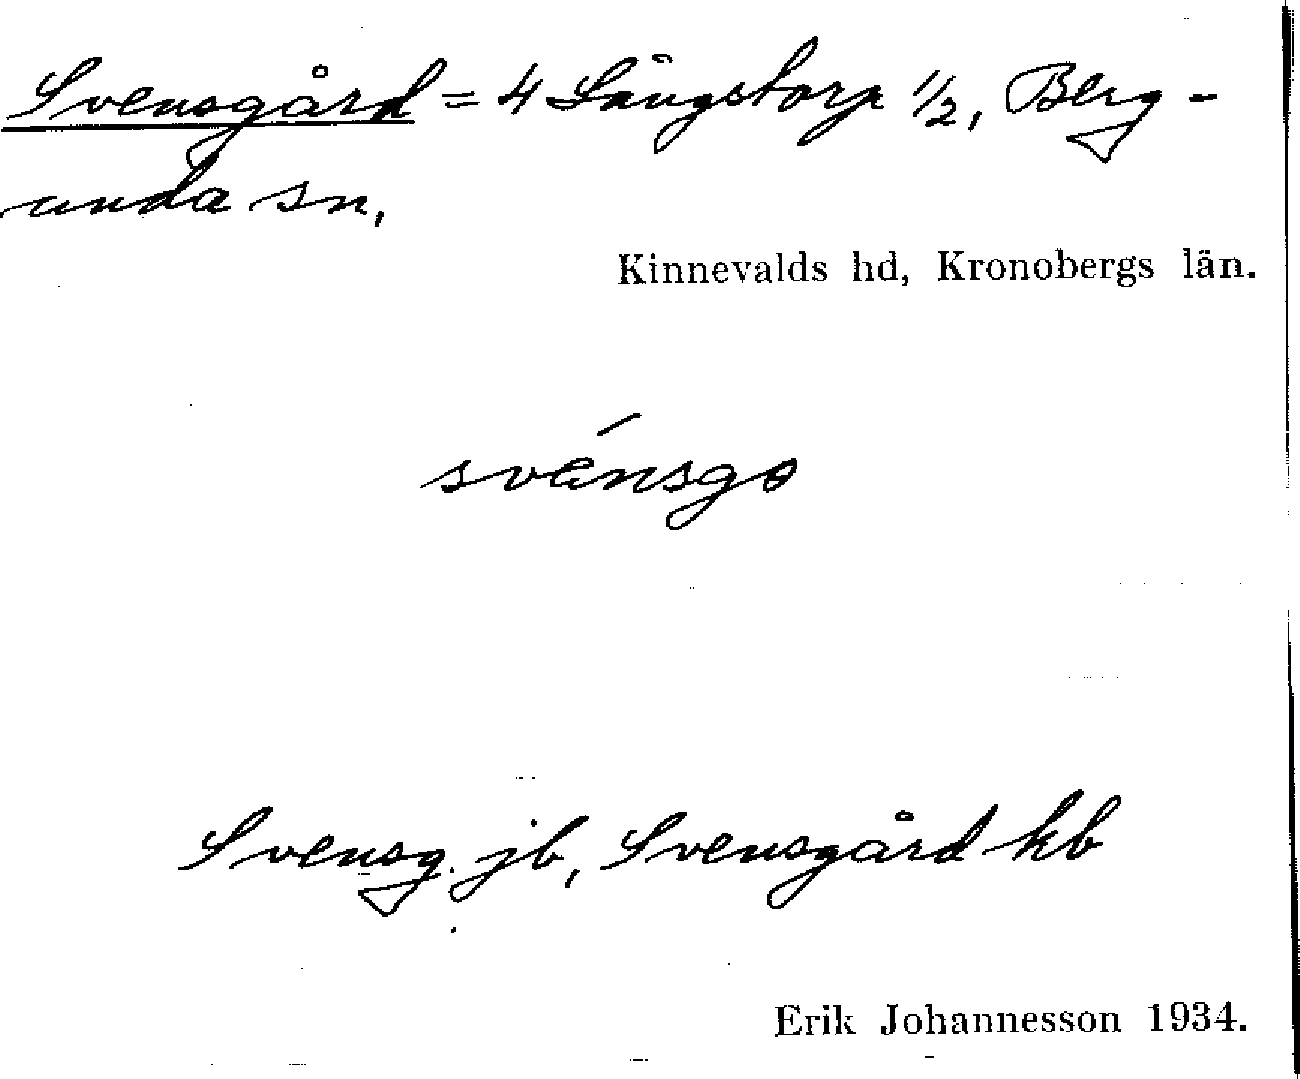 Svensgård = 4 Långstorp 1/2, Berg-
unda sn,
Kinnevalds hd, Kronobergs län.
svánsgo
Svensg. jb, Svensgård kb
Erik Johannesson 1934.